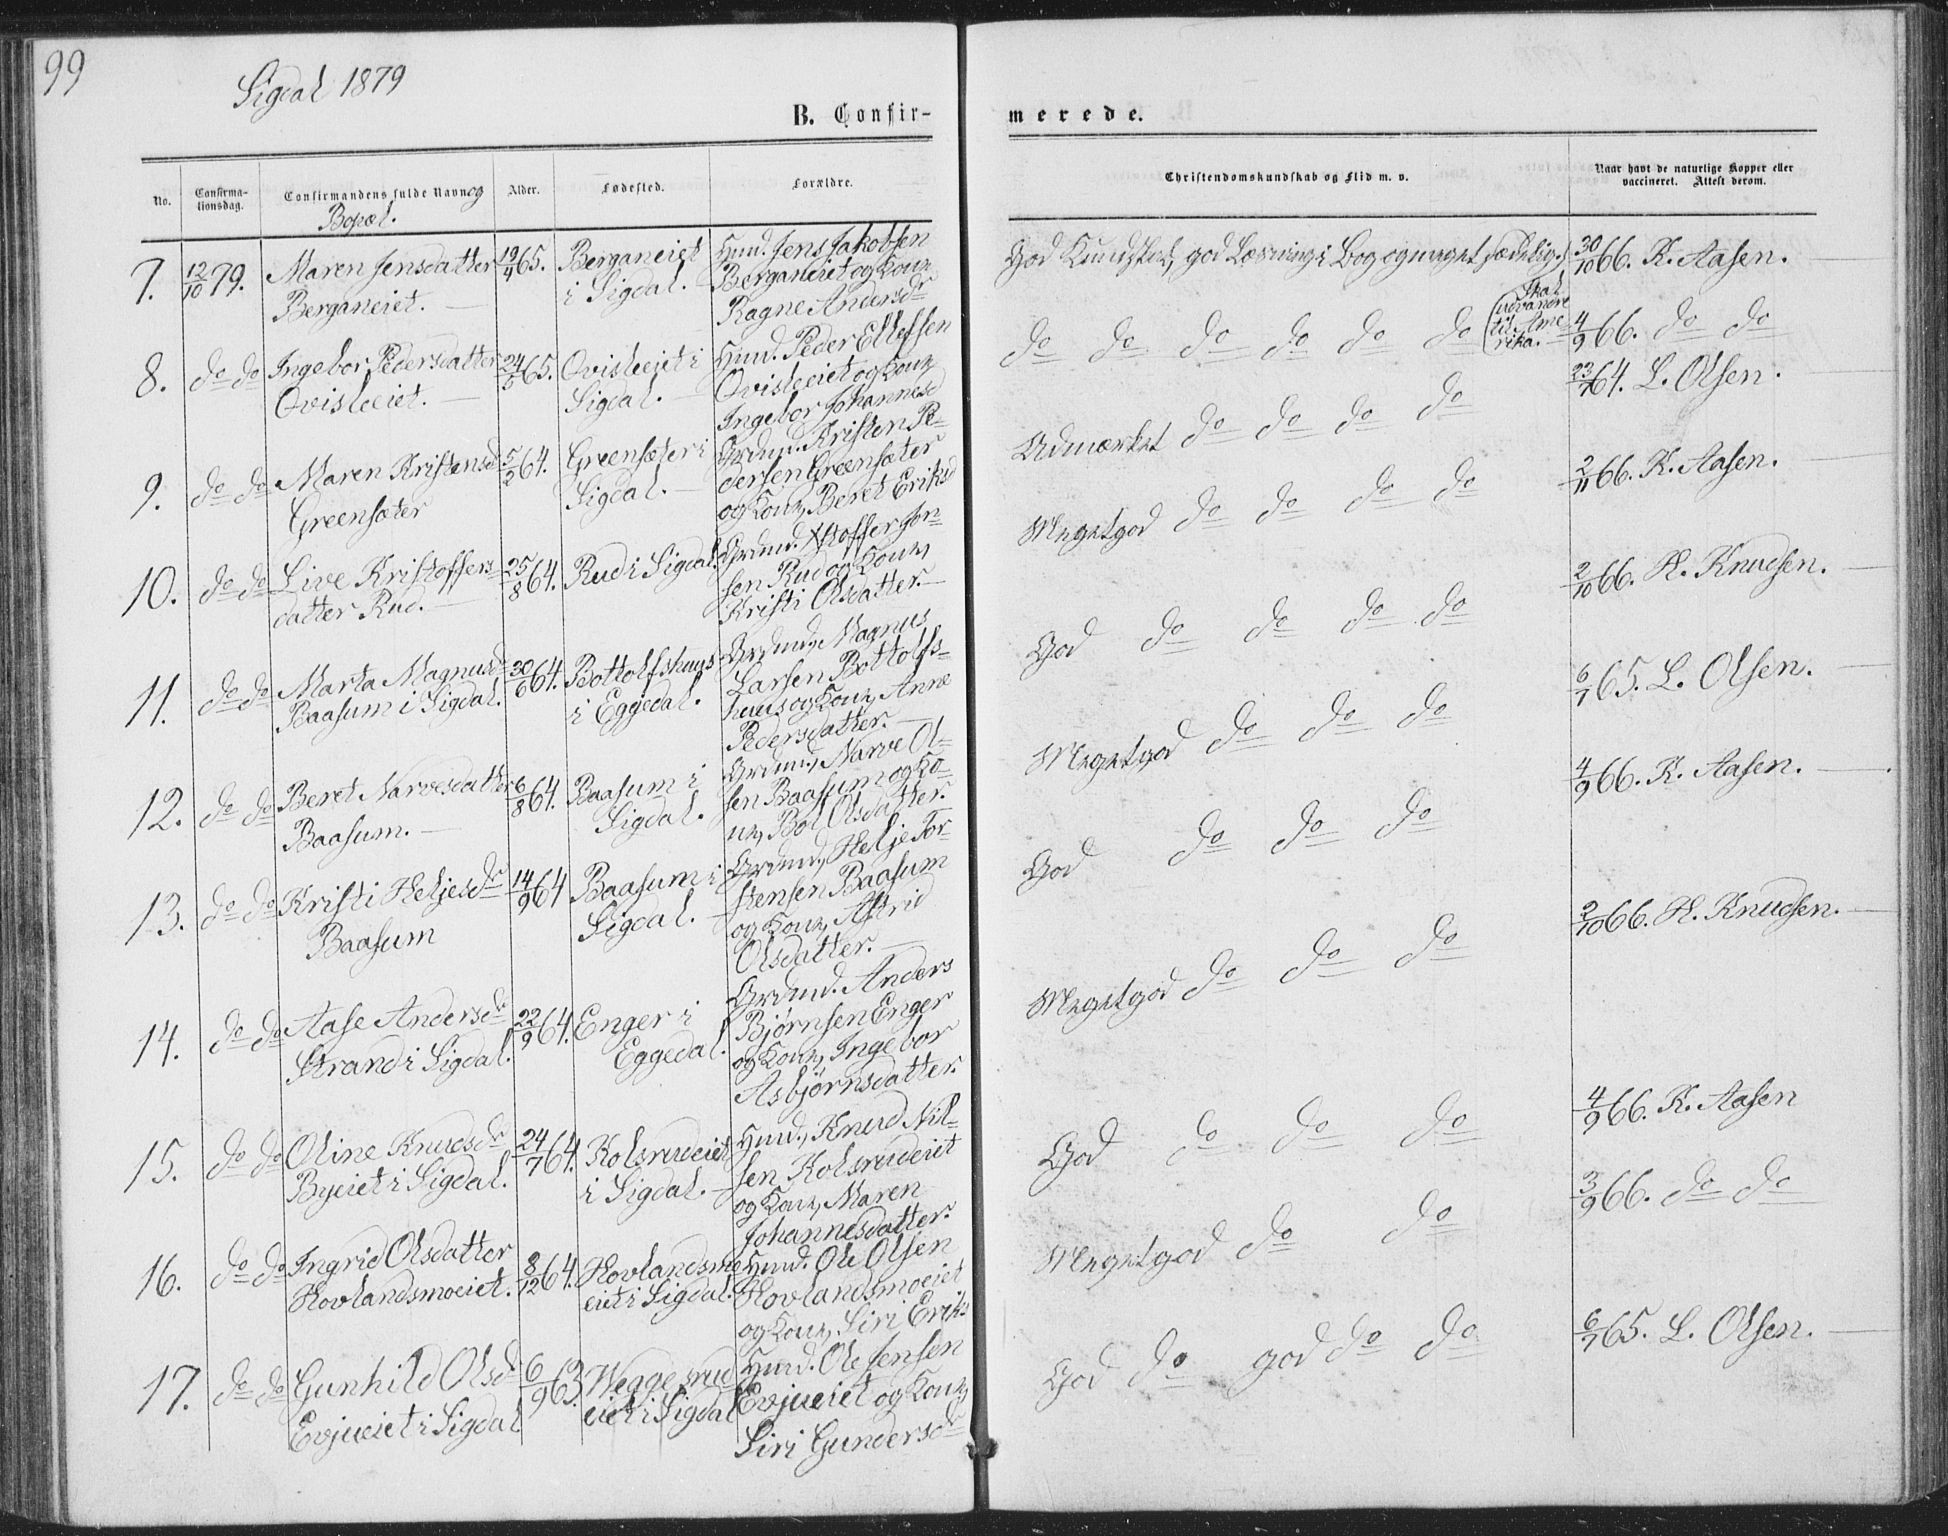 99
Sigdal 1879
B. Confir-
merede.
No.
Confirma-
tionsdag.
Confirmandens fulde Navn og
Bopæl.
Alder.
Fødested.
Forældre.
Christendomskundskab og Flid m. v.
Naar havt de naturlige Kopper eller
vaccineret. Attest derom.
7. 12/10 79. Maren Jensdatter 19/4 65. Berganeiet Husmd. Jens Jakobsen
Berganeiet. i Sigdal. Berganeiet og Kone
Ragne Andersdr
God Kundskab, god Læsning i Bog og meget sædelig. 30/10 66. K. Aasen.
8. do do Ingebor Pedersdatter 24/5 65. Ovisleeiet i Husmd. Peder Ellefsen
Ovisleeiet. Sigdal. Ovisleeiet og Kone
Ingebor Johannesd
do do do do do do (Skal
udvandre
til Ame
rika. 4/9 66. do do
9. do do Maren Kristensd 5/2 64. Greensæter i Grdmd. Kristen Pe-
Greensæter Sigdal. dersen Greensæter
og Kone, Beret Eriksd
Udmærket do do do do 23/7 64. L. Olsen.
10. do do Live Kristoffers 25/8 64. Rud i Sigdal. Grdmd. Kristoffer Jon-
datter Rud. sen Rud og Kone,
Kristi Olsdatter.
Megetgod do do do do 2/11 66. K. Aasen.
11. do do Marta Magnusdr 30/6 64. Bottolfshuus Grdmd, Magnus
Baasum i Sigdal. i Eggedal. Larsen Bottolfs-
huus og Kone, Anne
Pedersdatter.
God do do do do 2/10 66. H. Knudsen.
12. do do Beret Narvesdatter 6/8 64. Baasum i Grdmd, Narve Ol-
Baasum. Sigdal. sen Baasum og Ko-
ne, Böl Olsdatter.
Megetgod do do do 6/7 65. L. Olsen.
13. do do Kristi Heljesdr 14/9 64 Baasum i Grdmd, Helje Tor-
Baasum Sigdal. stensen Baasum
og Kone, Astrid
Olsdatter.
God do do do 4/9 66. K. Aasen.
14. do do Aase Andersdr 22/9 64. Enger i Grdmd. Anders
Strand i Sigdal. Eggedal. Bjørnsen Enger
og Kone, Ingebor
Asbjørnsdatter.
Megetgod do do do 2/10 66. H. Knudsen.
15. do do Oline Knudsdr 24/7 64. Kolsrudeiet Husmd, Knud Nil-
Byeiet i Sigdal. i Sigdal. sen Kolsrudeiet
og Kone, Maren
Johannesdatter.
God do do do 4/9 66. K. Aasen
16. do do Ingrid Olsdatter 8/12 64. Hovlandsmo Husmd. Ole Olsen
Hovlandsmoeiet. eiet i Sigdal. Hovlandsmoeiet
og Kone, Siri Eriks
Megetgod do do 3/9 66. do do
17. do do Gunhild Olsdr 6/9 63. Weggesrud Husmd. Ole Jensen
Evjueiet i Sigdal eiet i Sigdal Evjueiet og Kone,
Siri Gundersdr
God do god do do 6/7 65. L. Olsen.